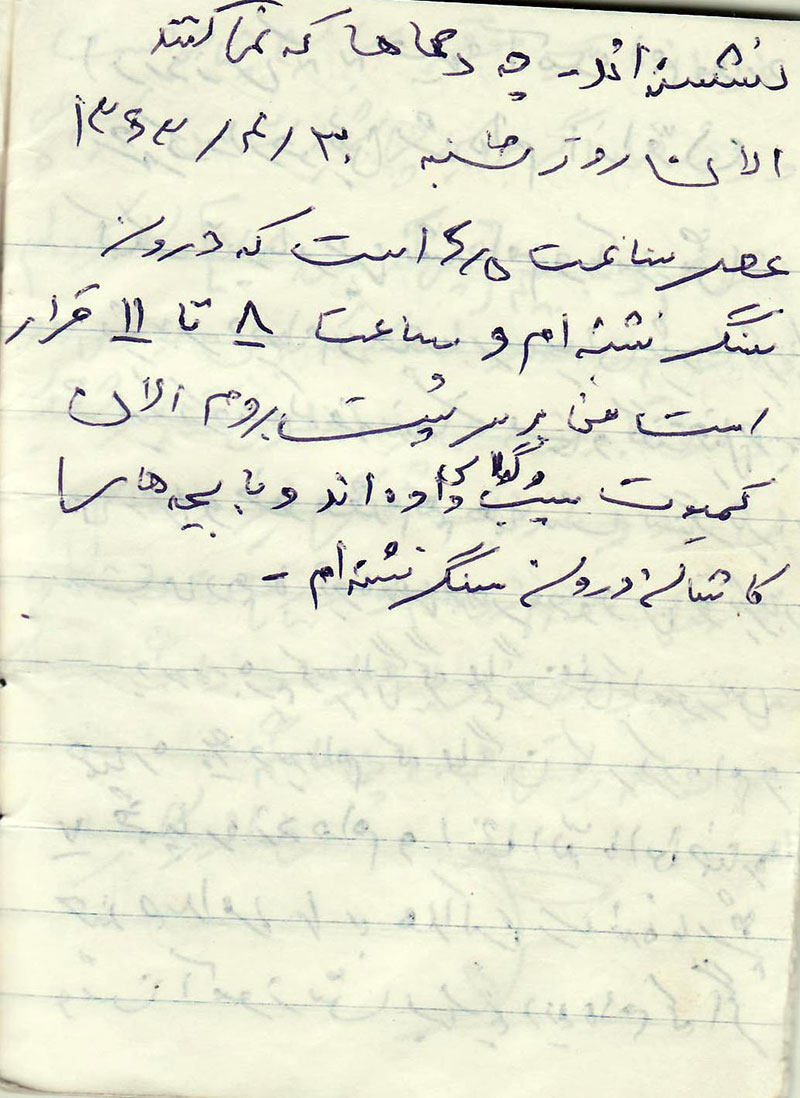 نشسته اند - چه دعاها که نمی کنند
الان روز شنبه ۱۳۶۳/۴/۳۰
عصر ساعت ۶/۵ است که درون
سنگر نشسته ام و ساعت ۸ تا ۱۱ قرار
است من بر سر پُست بروم الان
کمپوت سیب و گلابی داده اند و با بچه ها
درون سنگر نشسته ام -